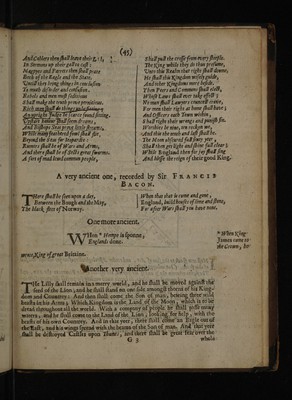 (45)
And Coblers then shall have their
In Sermons up their gall to cast;
Magpyes and Parrets then shall prate
Both of the Eagle and the State,
Untill they bring things in confusion
To much distaste and collusion.
Rebels and men most seditious
Shall make the truth prove pernitious.
Rich men shall do things
An upright Judge be scarce found sitting.
shall seem
And Bishops Sees prove little
While many feathered fowl shall
Beyond the Seas for
Rumors shall be of Wars and Arms,
And there shall be of fools great swarms.
A Set of mad lewd common people,
Shall pull the crosse from every steeple.
The King while they do thus presume,
Unto this Realm that right shall doome;
He shall this Kingdom wisely guide,
And other Kingdoms more beside.
Then Peers and Commons shall elect,
Whose Laws shall ever take effect:
No man shall Lawyers councell crave,
For men their rights at home shall have;
And Officers each Town within,
Shall right their wrongs and punish sin.
If twelve be nine, ten reckon we,
And this the truth and last shall be.
The Moon obscured sixty year,
Shall then get light and shine full clear:
While England then for joy shall sing
And blesse the reign of their good King.
A very ancient one, recorded by Sir FRANCIS
BACON.
There shall be seen upon a day,
Between the Bough and the May,
The black fleet of Norway.
When that that is come and gone,
England, build houses of lime and stone,
For after Wars shall you have none.
One more ancient.
When * Hempe is sponne,
Englands done.
* When King
James came to
the Crown, he
wrote King of great Britaine.
Another very ancient.
THe Lilly shall remain in a merry world, and he shall be moved against the
seed of the Lion, and he shall stand on one side amongst thorns of his King-
dom and Countrey: And then shall come the son of man, bearing three wild
beasts in his Arms; Which Kingdom is the Land of the Moon, which is to be
dread throughout all the world. With a company of people he shall passe many
waters, and he shall come to the Land of the Lion, looking for help, with the
beasts of his own Countrey. And in that year, there shall come an Eagle out of
the East, and his wings spread with the beams of the Son of man. And that year
shall be destroyed Castles upon Thame, and there shall be great fear over the
G 3
whole